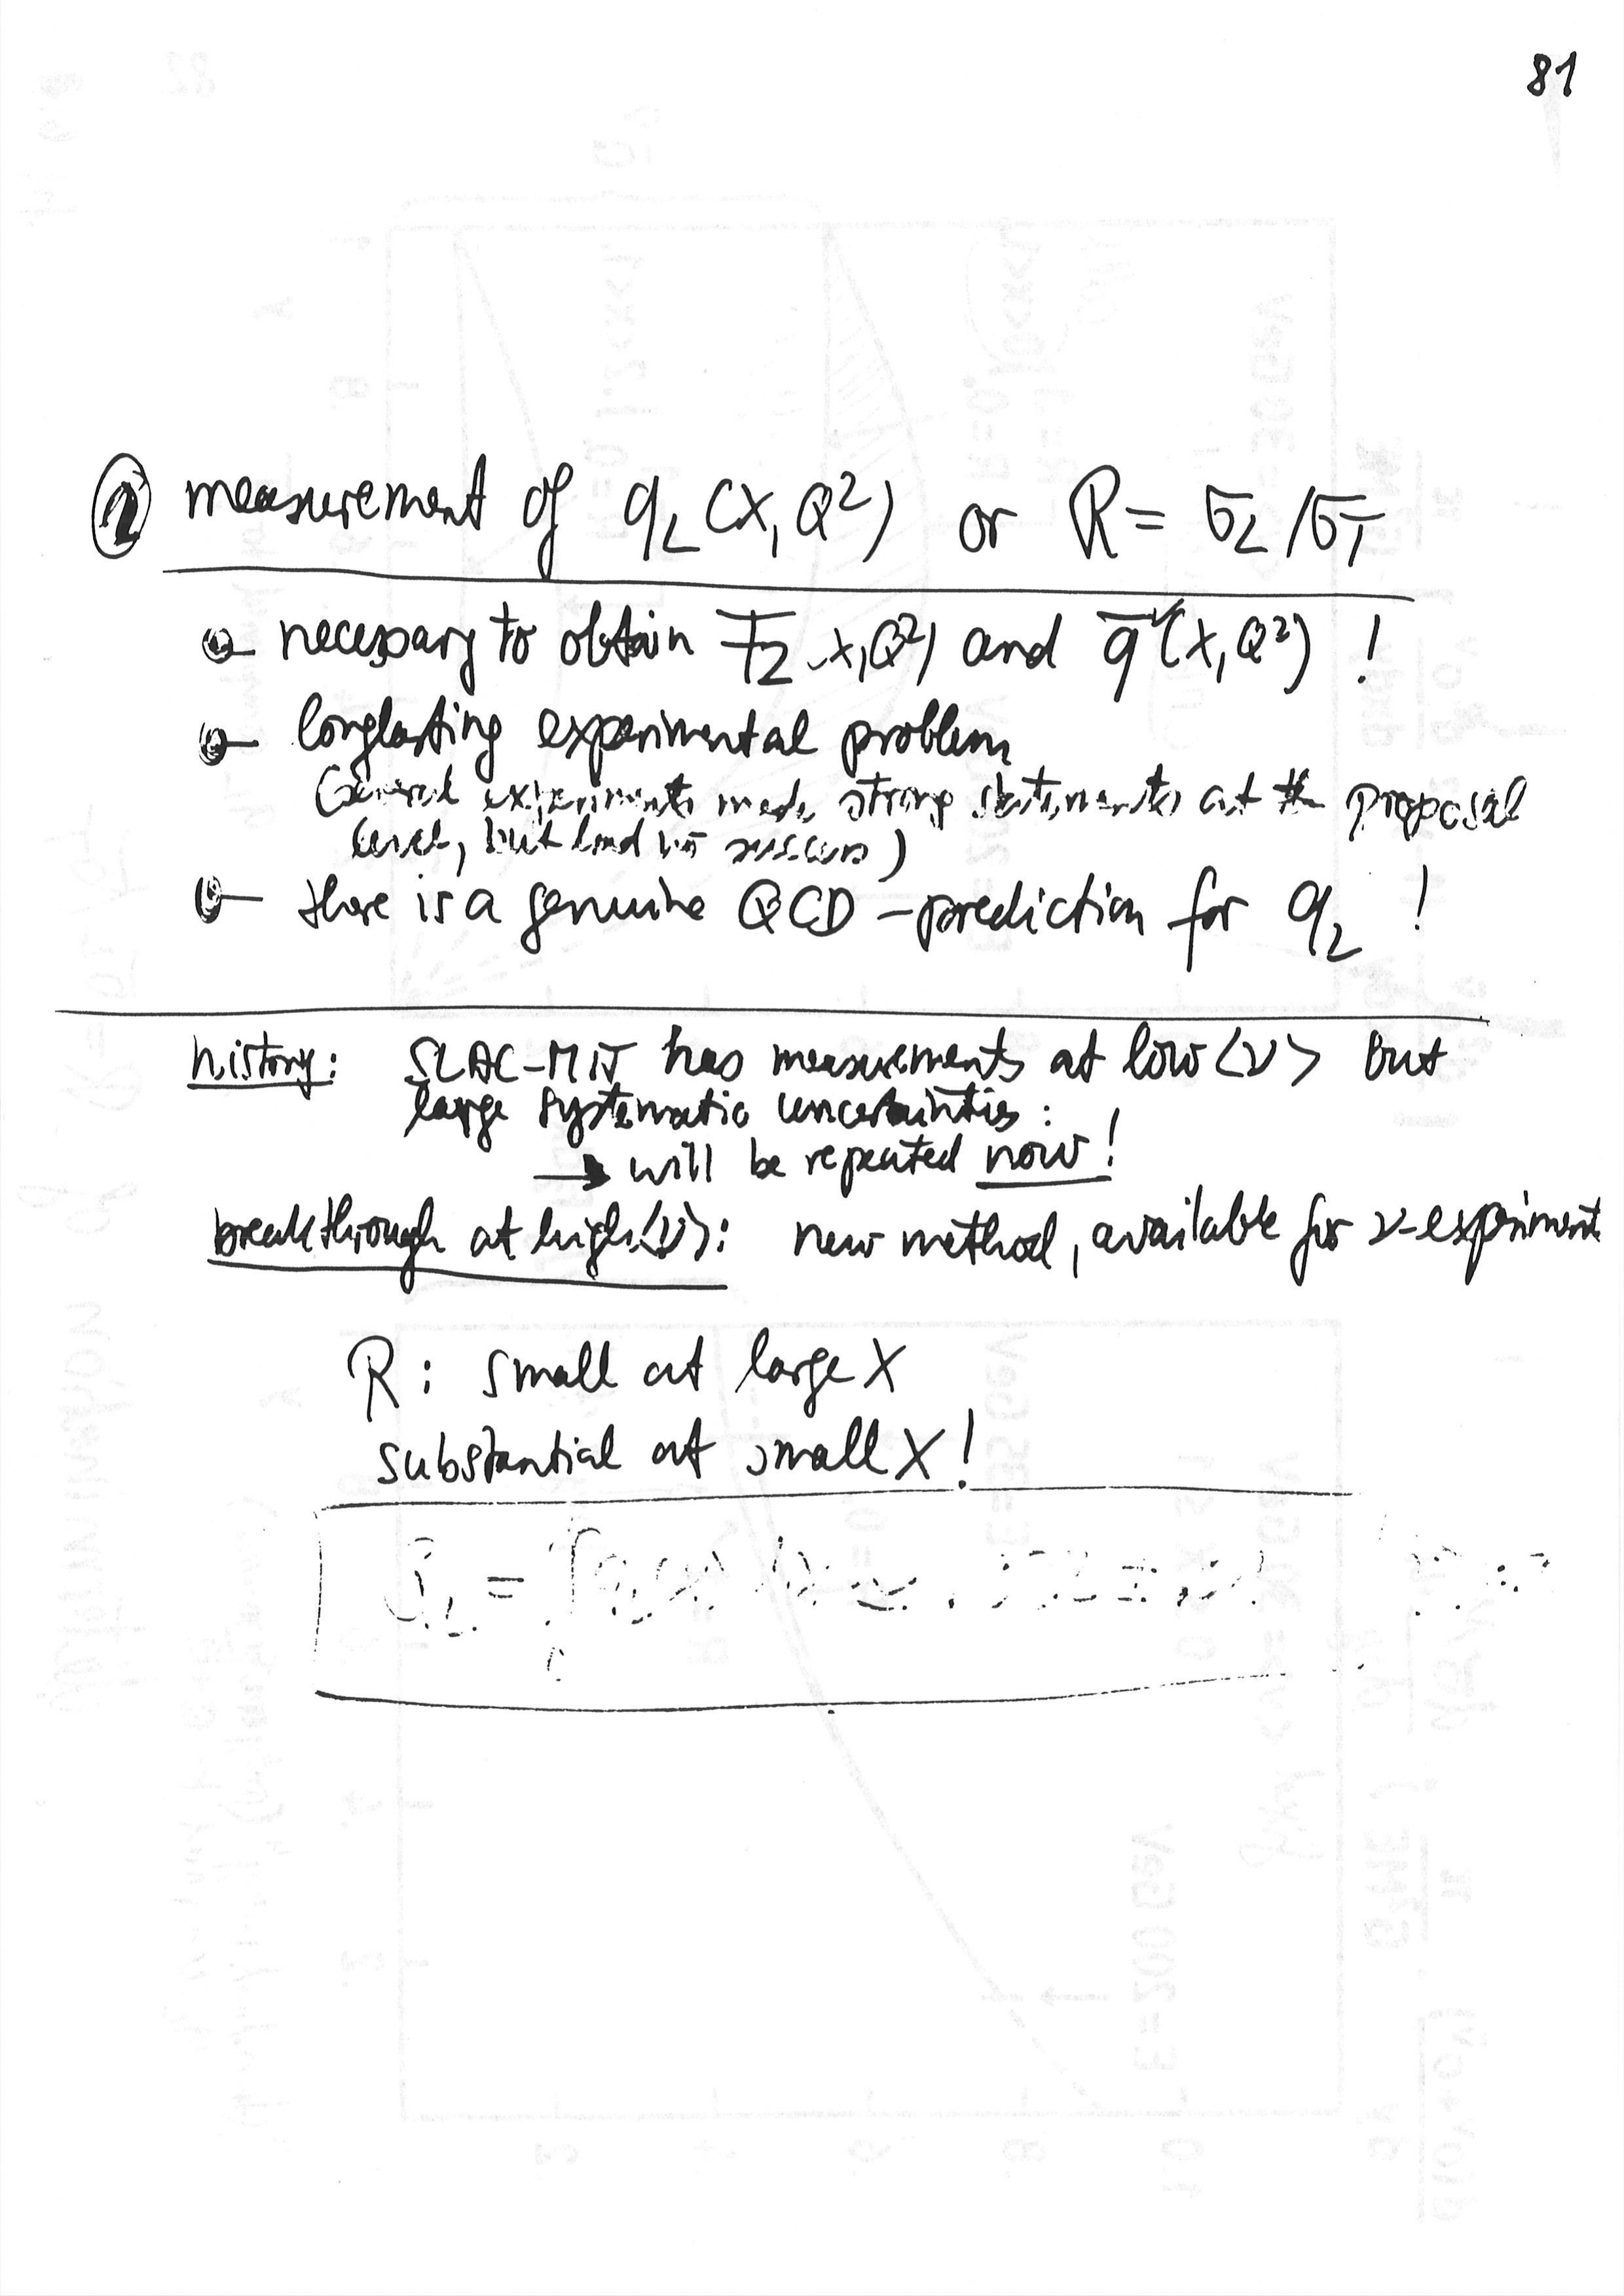 81
② measurement of q_L (x, Q²) or R = σ_L/σ_T
necessary to obtain F₂ x,Q²) and q̄^ν(x,Q²) !
longlasting experimental problem
(several experiments made strong statements at the proposal
level, but had no success)
there is a genuine QCD - prediction for q_L !
history: SLAC-MIT has measurements at low <ν> but
large systematic uncertainties :
→ will be repeated now!
breakthrough at high <ν>: new method, available for ν-experiment
R: small at large x
substantial at small x!